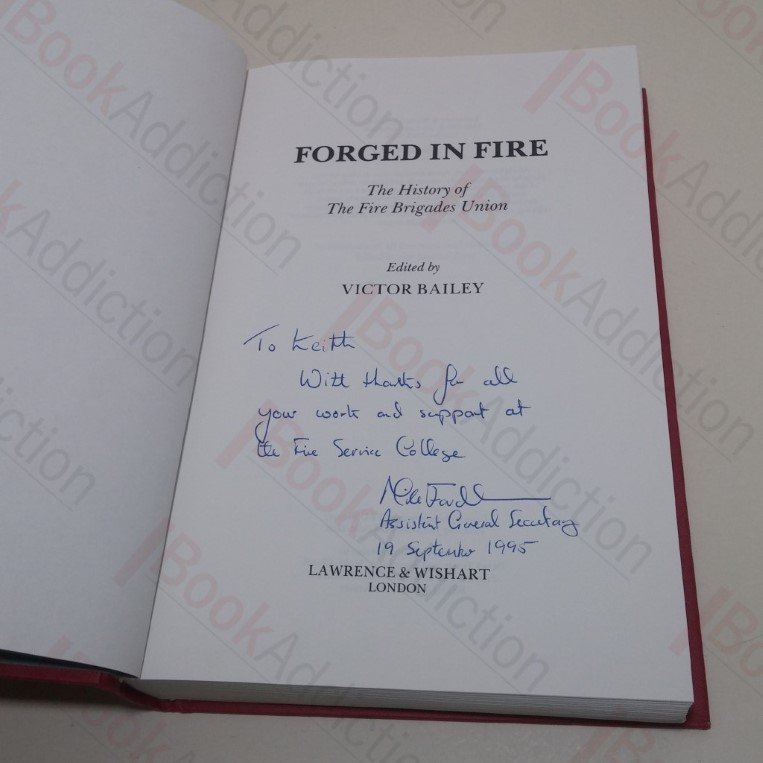 FORGED IN FIRE
The History of
The Fire Brigades Union
Edited by
VICTOR BAILEY
To Keith
With thanks for all
your work and support at
the Fire Service College
Mike
Assistant General Secretary
19 September 1995
LAWRENCE & WISHART
LONDON
BookAddiction